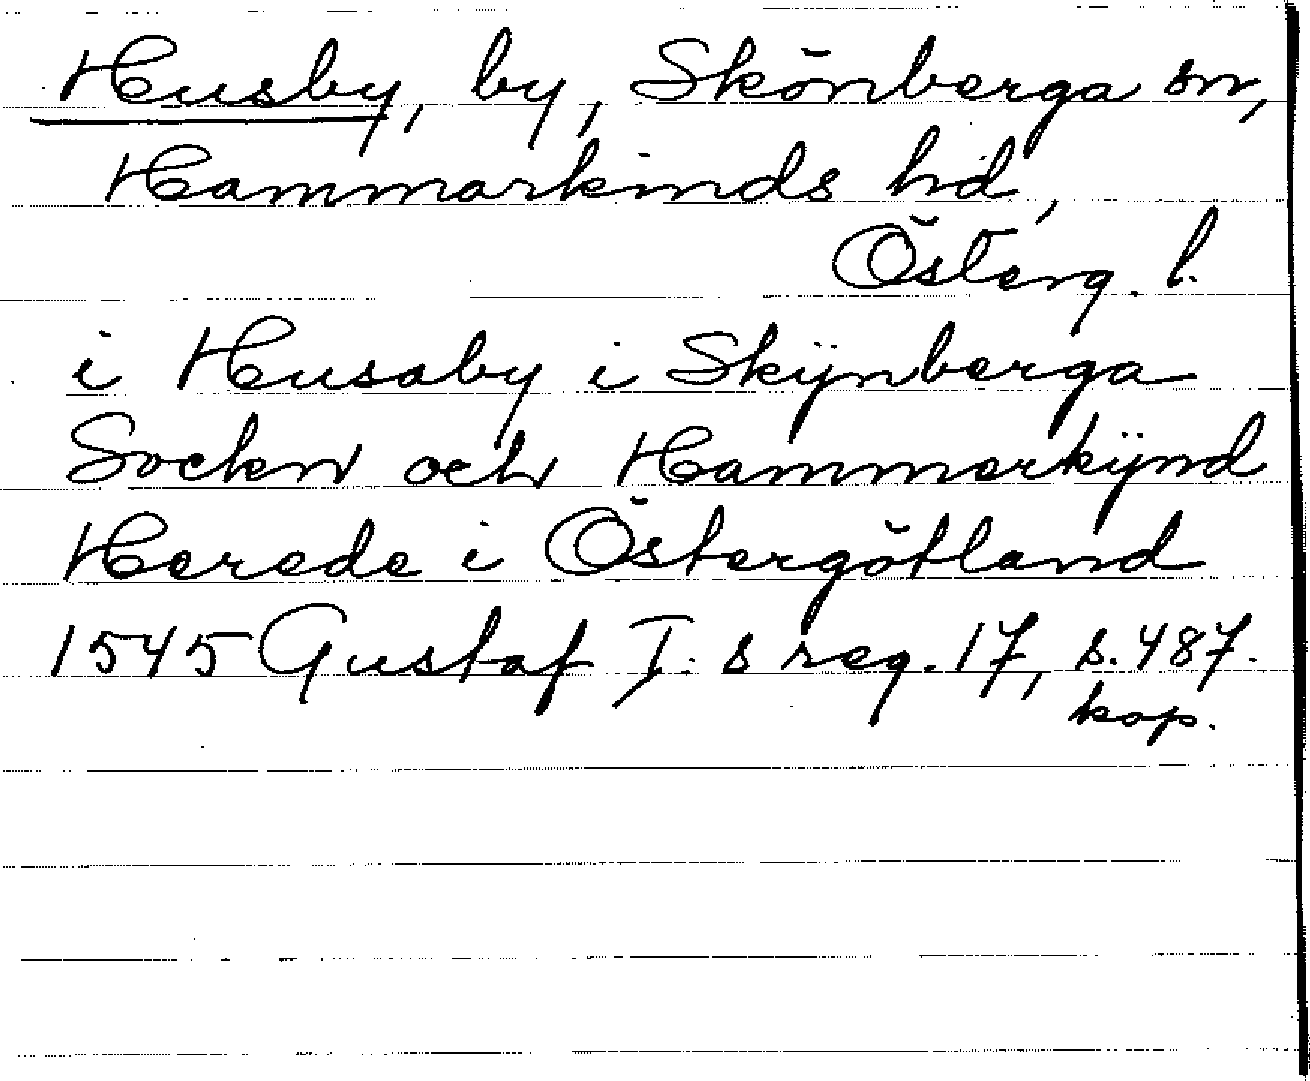 Husby, by, Skönberga sn,
Hammarkinds hd,
Österg. l.
i Husaby i Skÿnberga
Sockn och Hammerkÿnd
Herede i Östergötland
1545 Gustaf I:s reg. 17, s. 487.
kop.